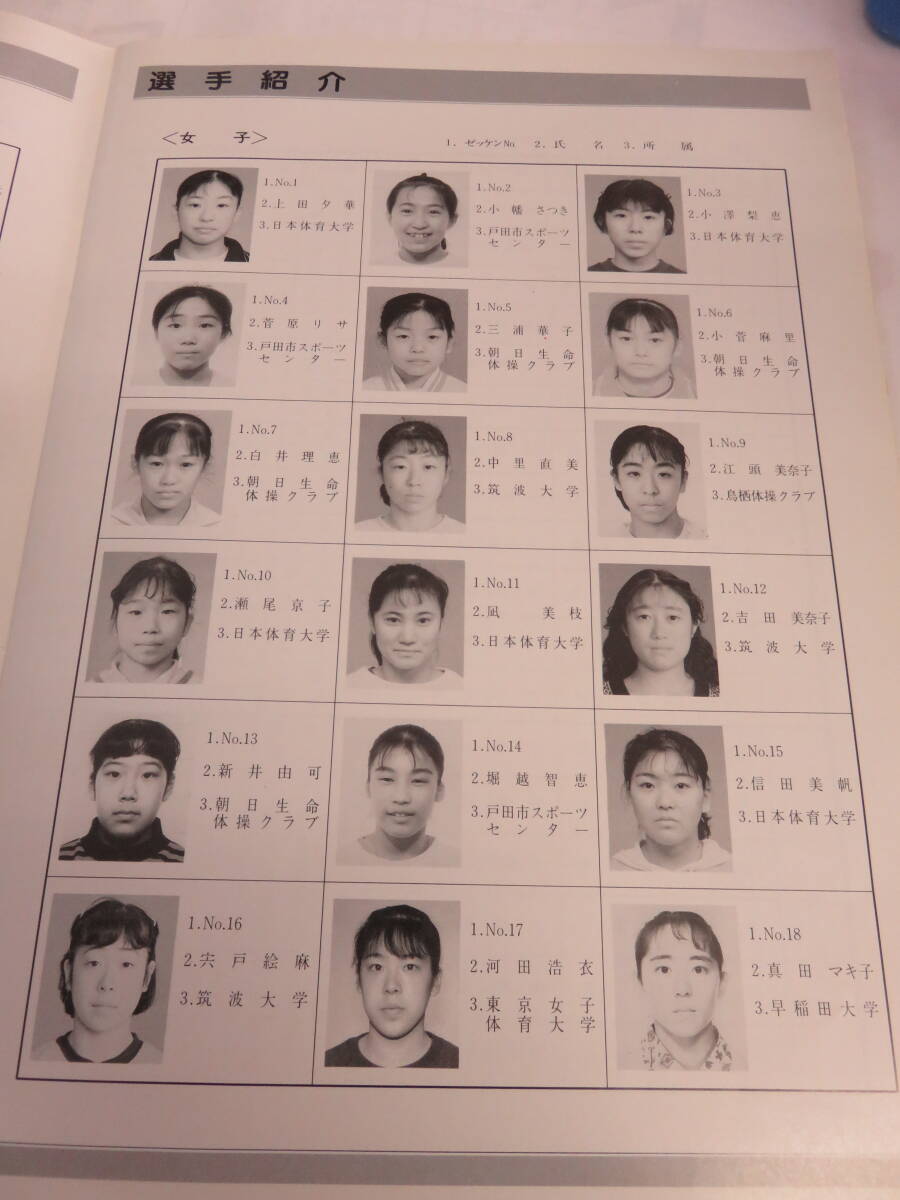 選手紹介
<女子>
1. ゼッケンNo. 2. 氏名 3. 所属
1.No.1
2.上田夕華
3.日本体育大学
1.No.2
2.小幡さつき
3.戸田市スポーツ
センター
1.No.3
2.小澤梨恵
3.日本体育大学
1.No.4
2.菅原リサ
3.戸田市スポーツ
センター
1.No.5
2.三浦華子
3.朝日生命
体操クラブ
1.No.6
2.小菅麻里
3.朝日生命
体操クラブ
1.No.7
2.白井理恵
3.朝日生命
体操クラブ
1.No.8
2.中里直美
3.筑波大学
1.No.9
2.江頭美奈子
3.鳥栖体操クラブ
1.No.10
2.瀬尾京子
3.日本体育大学
1.No.11
2.凪美枝
3.日本体育大学
1.No.12
2.吉田美奈子
3.筑波大学
1.No.13
2.新井由可
3.朝日生命
体操クラブ
1.No.14
2.堀越智恵
3.戸田市スポーツ
センター
1.No.15
2.信田美帆
3.日本体育大学
1.No.16
2.宍戸絵麻
3.筑波大学
1.No.17
2.河田浩衣
3.東京女子
体育大学
1.No.18
2.真田マキ子
3.早稲田大学